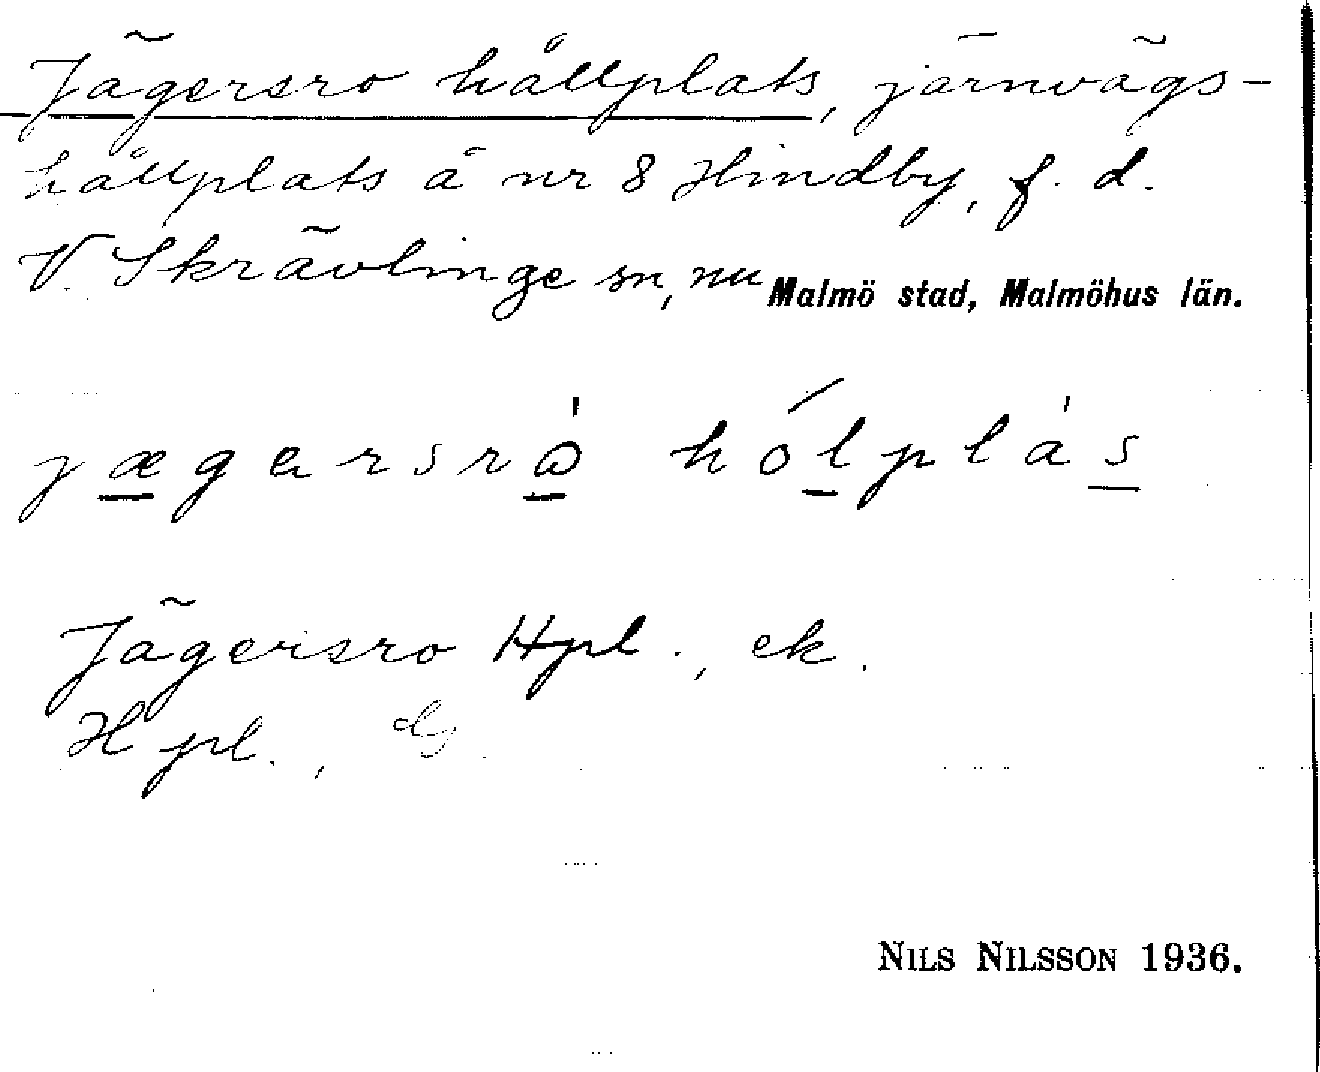 Jägersro hållplats, järnvägs-
hållplats å nr 8 Hindby, f. d.
V. Skrävlinge sn, nu Malmö stad, Malmöhus län.
jægɐrsrꙍ̀ hólplàs
Jägersro Hpl., ek.
Hpl.,
NILS NILSSON 1936.